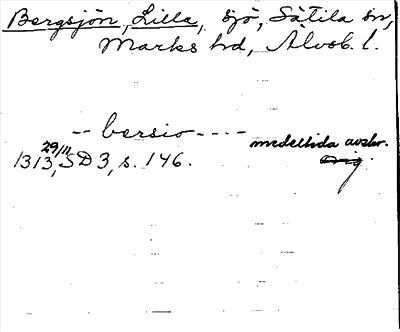 Bergsjön, Lilla, sjö, Sätila sn,
Marks hd, Älvsb. l.
-- bersio ----
medeltida avskr.
1313 29/11, SD 3, s. 146.